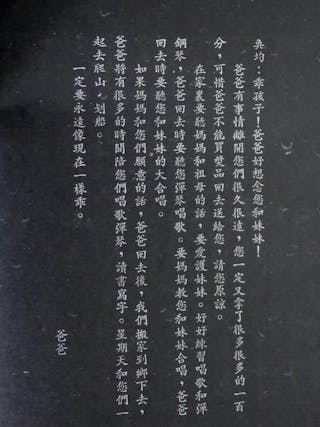 奐均：乖孩子！爸爸好想念您和妹妹！
爸爸有事情離開您們很久很遠，您一定又拿了很多很多的一百
分，可惜爸爸不能買獎品回去送給您，請您原諒。
在家裏要聽媽媽和祖母的話，要愛護妹妹。好好練習唱歌和彈
鋼琴，爸爸回去時要聽您彈琴唱歌。要媽媽教您和妹妹合唱，爸爸
回去時要聽您和妹妹的大合唱。
如果媽媽和您們願意的話，爸爸回去後，我們搬家到鄉下去，
爸爸將有很多的時間陪您們唱歌彈琴，讀書寫字。星期天和您們一
起去爬山，划船。
一定要永遠像現在一樣乖。
爸爸